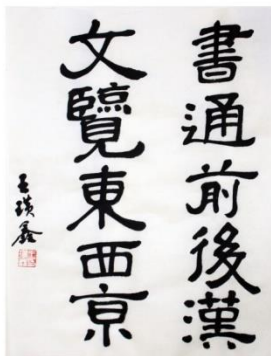 書通前後漢
文覽東西京
王璜鑫